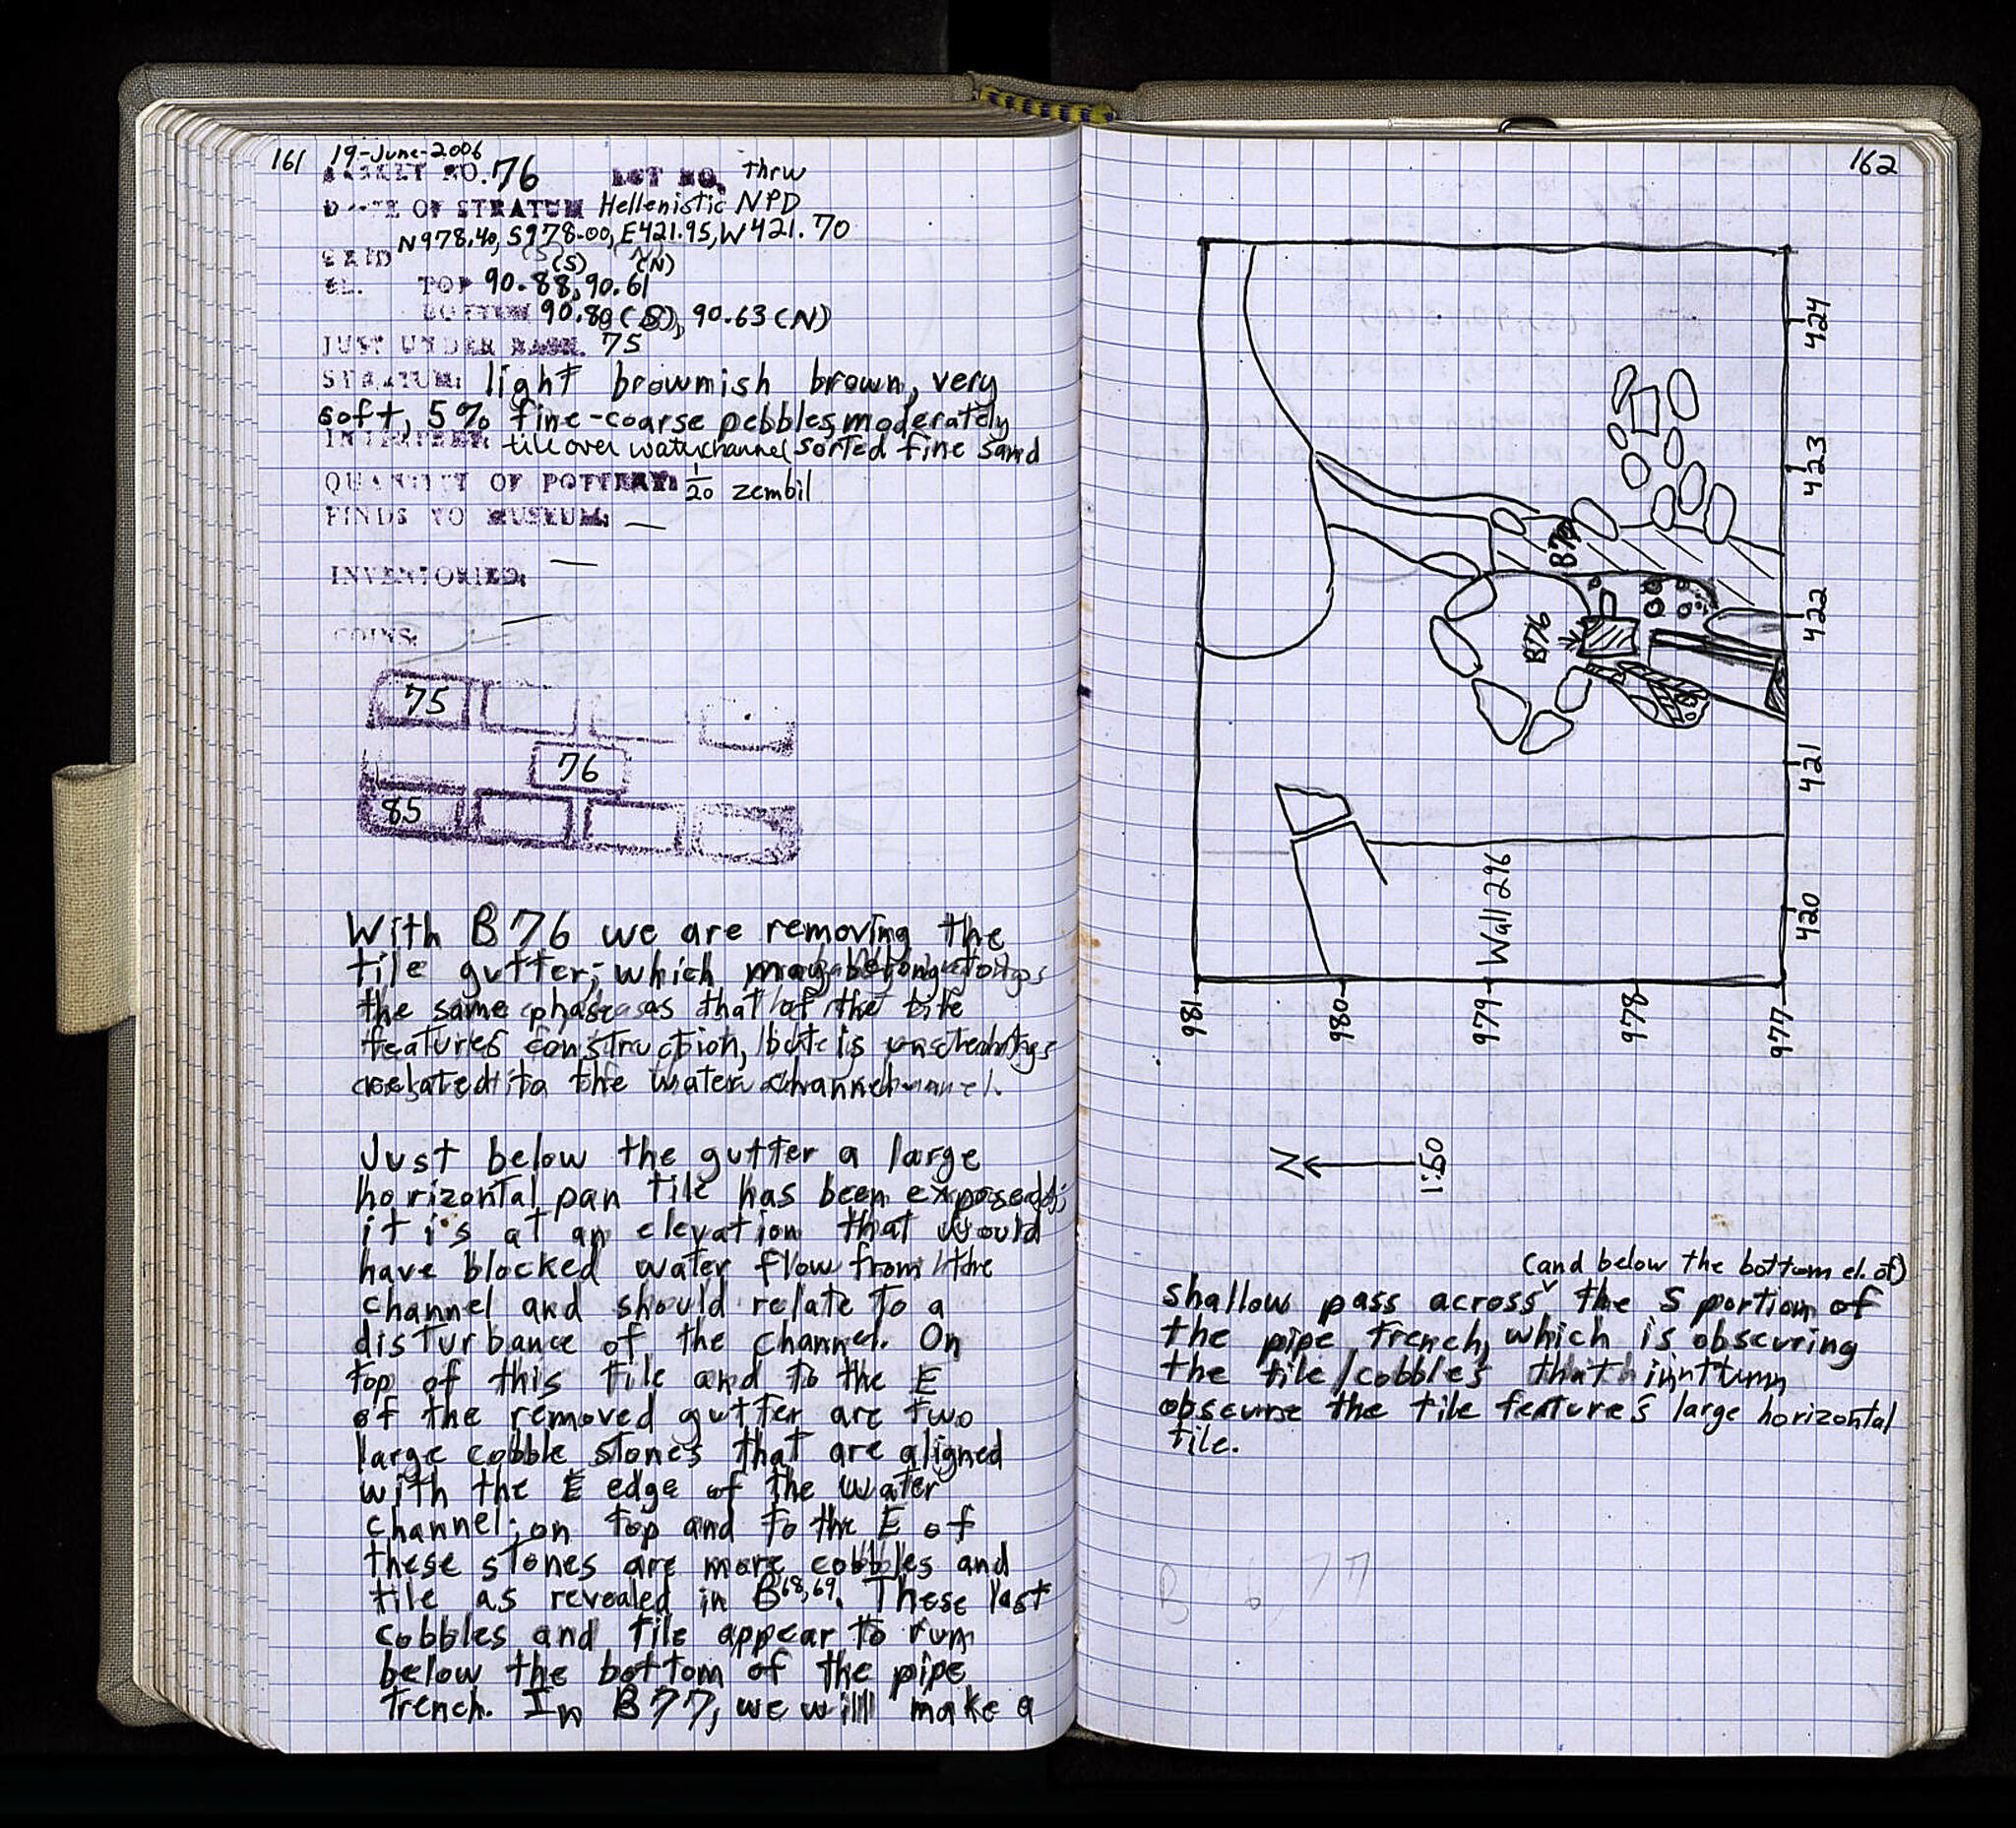 161 19-June-2006
BASKET NO. 76 LOT NO. thrw
DATE OF STRATUM Hellenistic NPD
N978.40, S978.00, E421.95, W421.70
GRID (S) (N)
EL. TOP 90.88, 90.61
BOTTOM 90.80 (S), 90.63 (N)
JUST UNDER BASK. 75
STRATUM: light brownish brown, very
soft, 5% fine-coarse pebbles, moderately
tile over water channel sorted fine sand
QUANTITY OF POTTERY: 1/20 zembil
FINDS TO MUSEUM: —
INVENTORIED: —
COINS: —
75
76
85
With B76 we are removing the
tile gutter, which may belong to
the same phase as that of the tile
features construction, but is
related to the water channel.
Just below the gutter a large
horizontal pan tile has been exposed;
it is at an elevation that would
have blocked water flow from the
channel and should relate to a
disturbance of the channel. On
top of this tile and to the E
of the removed gutter are two
large cobble stones that are aligned
with the E edge of the water
channel; on top and to the E of
these stones are more cobbles and
tile as revealed in B68,69. These last
cobbles and tile appear to run
below the bottom of the pipe
trench. In B77, we will make a
162
424
423
422
421
420
B76
Wall 296
981
980
979
978
977
N
1:50
(and below the bottom el. of)
shallow pass across ˅ the S portion of
the pipe trench, which is obscuring
the tile/cobbles that in turn
obscure the tile feature's large horizontal
tile.